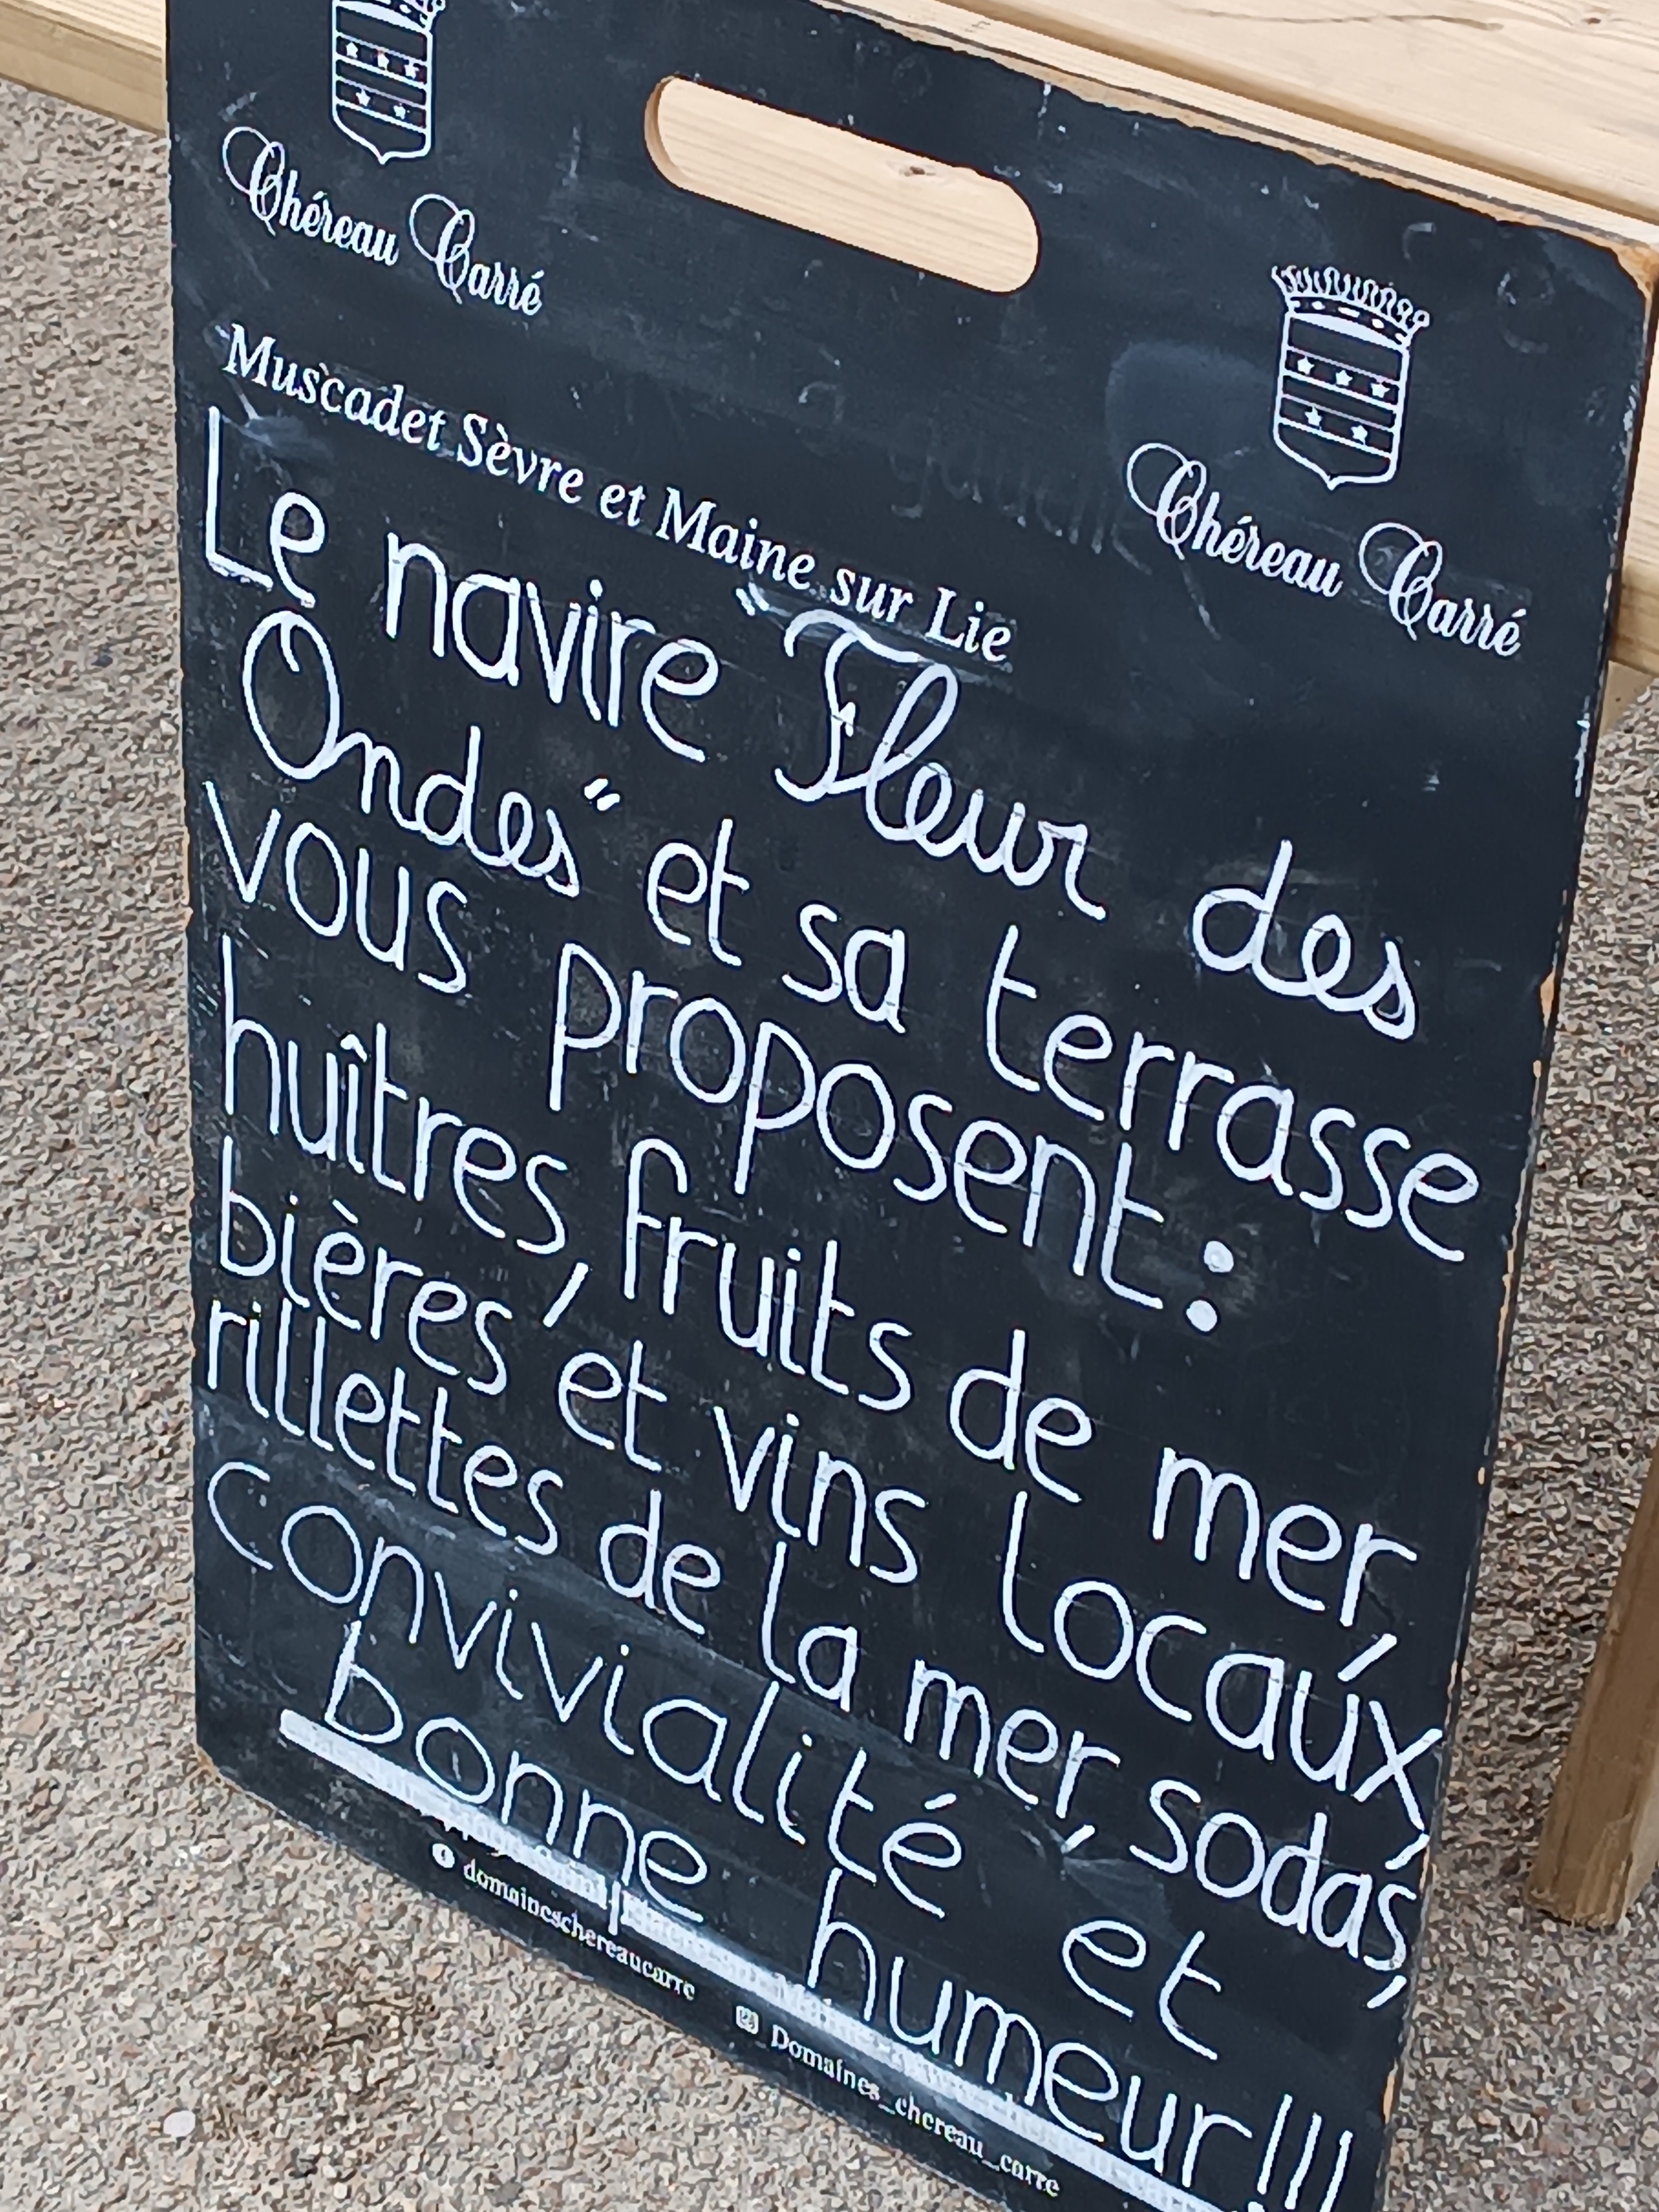 Chéreau Carré
Chéreau Carré
Muscadet Sèvre et Maine sur Lie
Le navire "Fleur des
Ondes" et sa terrasse
vous proposent :
huîtres, fruits de mer,
bières, et vins locaux,
rillettes de la mer, sodas,
convivialité et
bonne humeur!!!
domaineschereaucarre
Domaines_chereau_carre